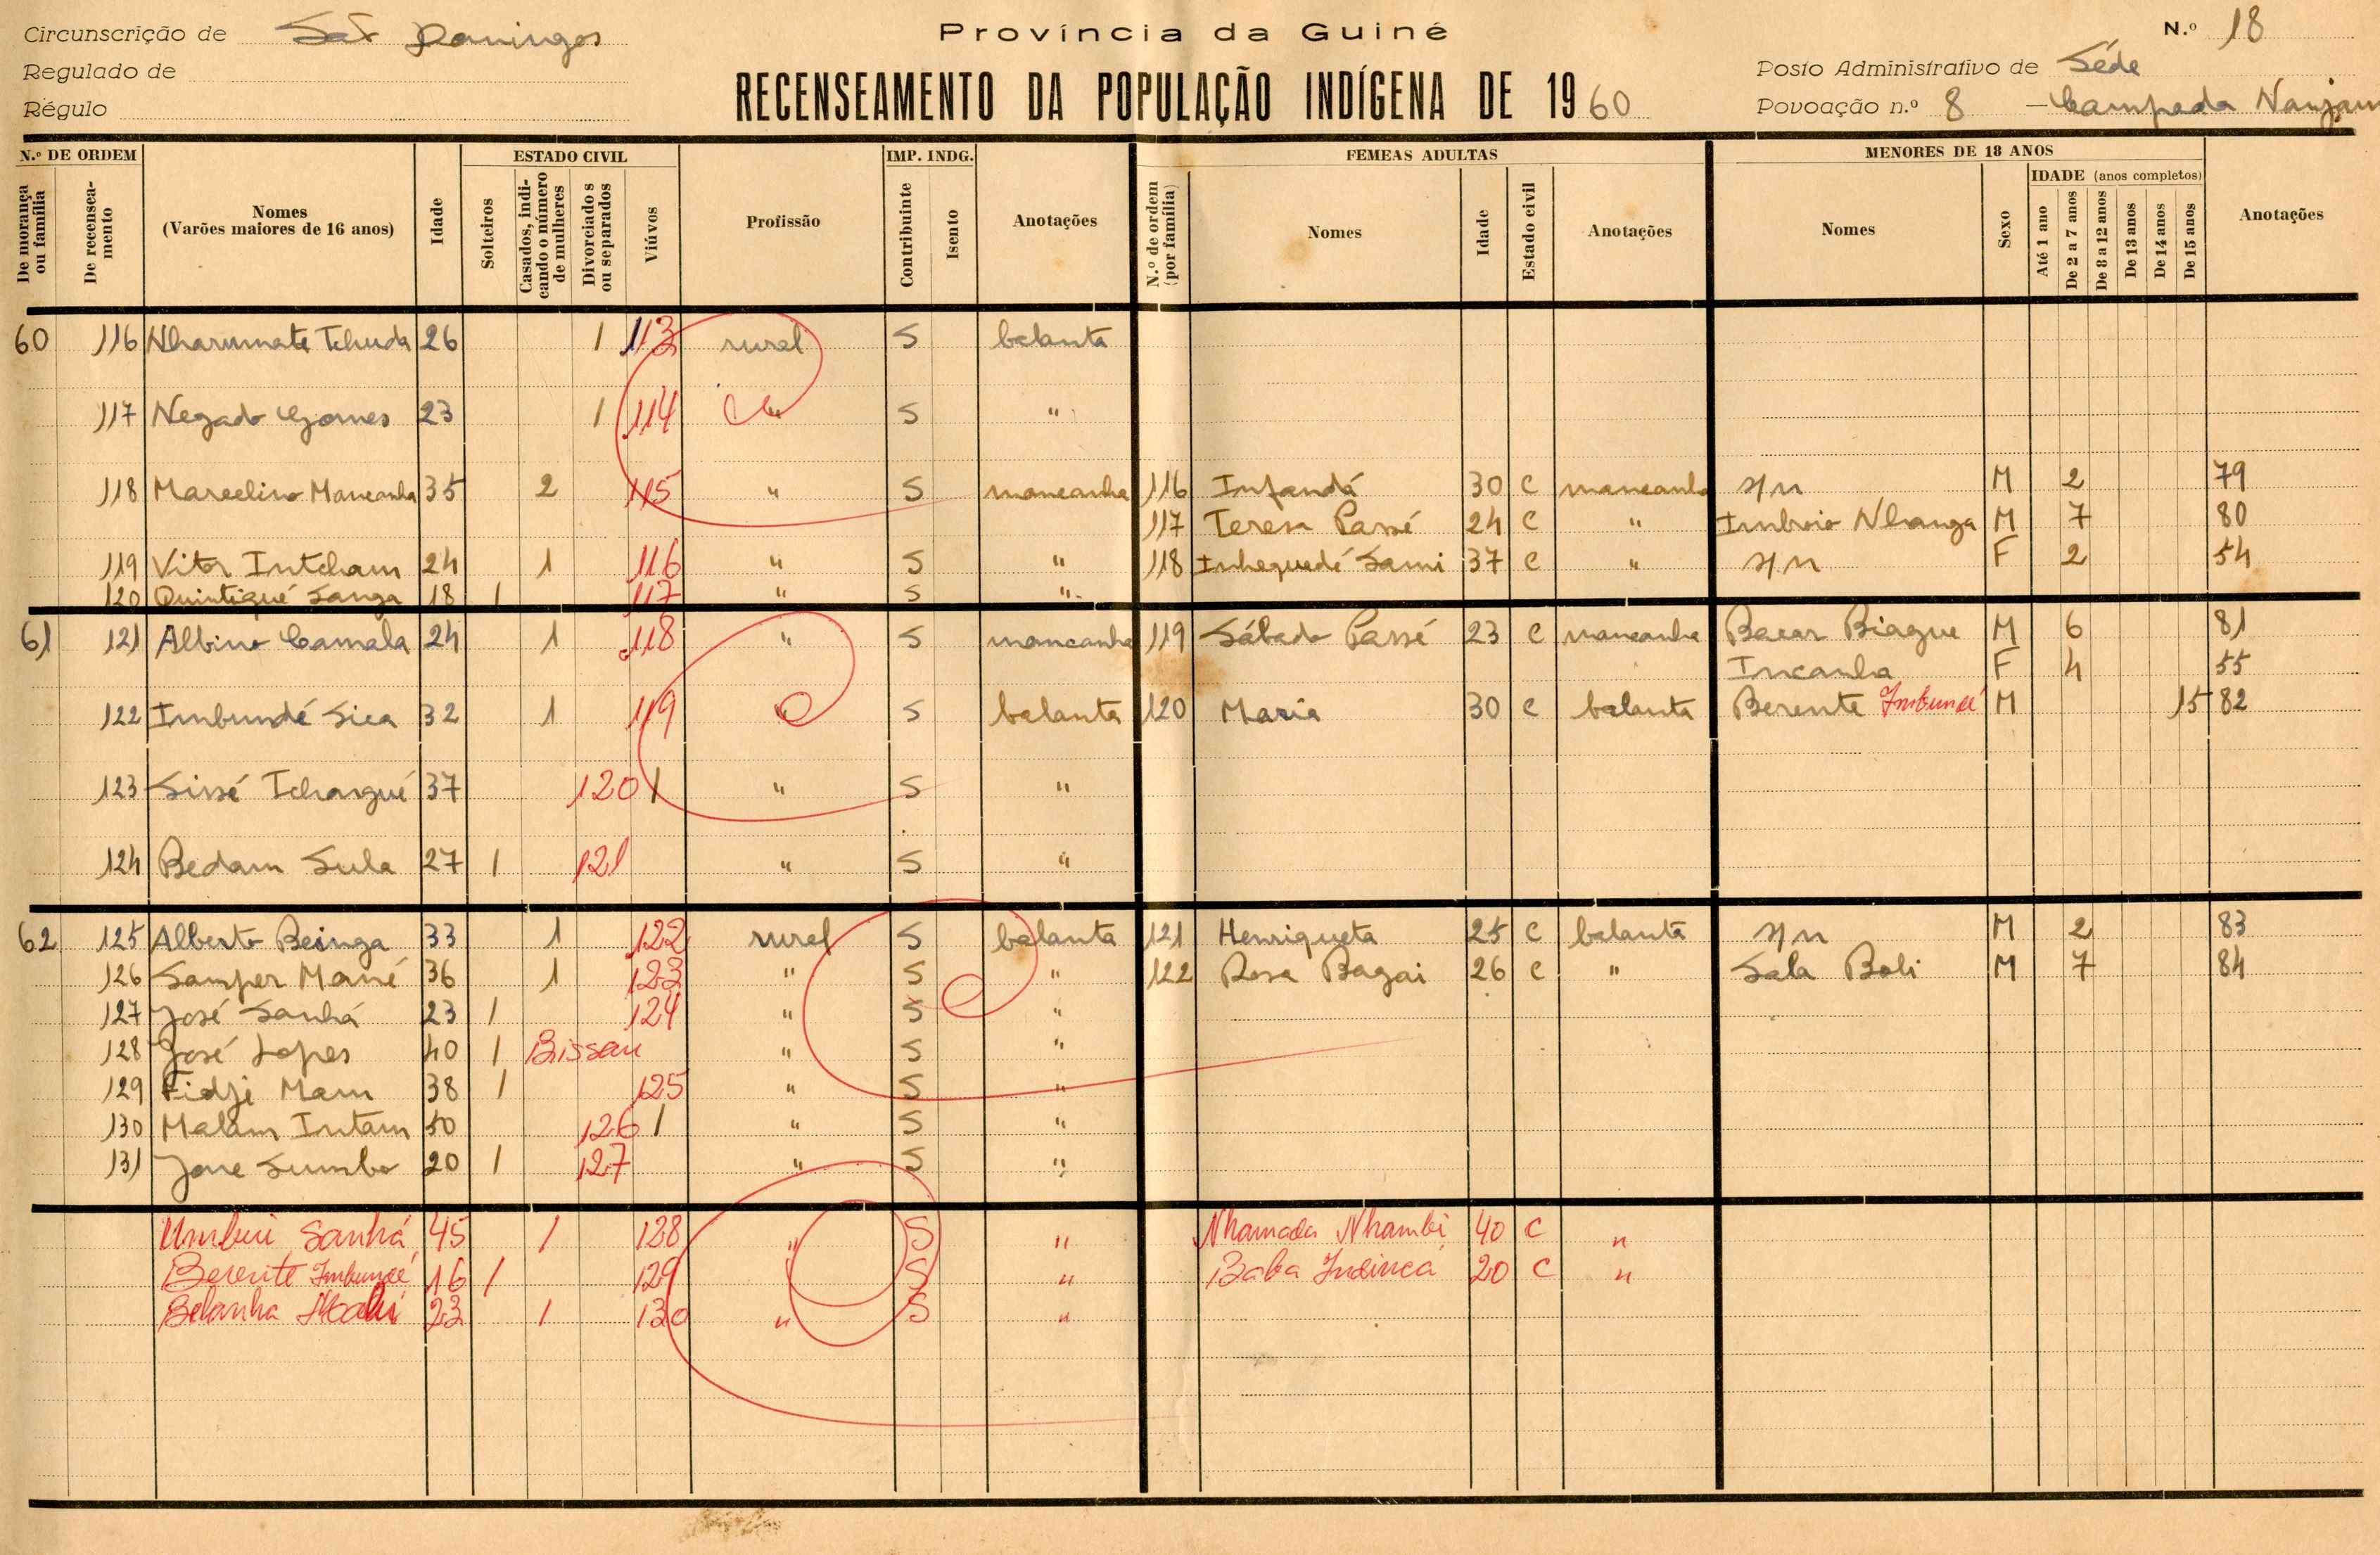 Circunscrição de São Domingos
Província da Guiné
N.º 18
Regulado de
RECENSEAMENTO DA POPULAÇÃO INDÍGENA DE 1960
Posto Administrativo de Séde
Régulo
Povoação n.º 8 - Campada Nanjam
N.º DE ORDEM
De morança ou família
De recenseamento
Nomes
(Varões maiores de 16 anos)
Idade
ESTADO CIVIL
Solteiros
Casados, indicando o número de mulheres
Divorciados ou separados
Viúvos
Profissão
IMP. INDG.
Contribuinte
Isento
Anotações
FEMEAS ADULTAS
N.º de ordem (por família)
Nomes
Idade
Estado civil
Anotações
MENORES DE 18 ANOS
Nomes
Sexo
IDADE (anos completos)
Até 1 ano
De 2 a 7 anos
De 8 a 12 anos
De 13 anos
De 14 anos
De 15 anos
Anotações
60 116 Nharumate Tchuda 26 1 113 rural S balanta
117 Negado Gomes 23 1 114 " S "
118 Marcelino Mancanha 35 2 115 " S mancanha 116 Infandá 30 C mancanha s/n M 2 79
117 Teresa Passé 24 C " Imboio Nhanga M 7 80
119 Vitor Intcham 24 1 116 " S " 118 Inhequedé Sami 37 C " s/n F 2 54
120 Quintiqué Sanga 18 1 117 " S "
61 121 Albino Camala 24 1 118 " S mancanha 119 Sábado Passé 23 C mancanha Bacar Biague M 6 81
Incanha F 4 55
122 Imbundé Sica 32 1 119 " S balanta 120 Maria 30 C balanta Berente Imbundé M 15 82
123 Sissé Tchangué 37 120 1 " S "
124 Bedam Sula 27 1 121 " S "
62 125 Alberto Beinga 33 1 122 rural S balanta 121 Henriqueta 25 C balanta s/n M 2 83
126 Samper Mané 36 1 123 " S " 122 Rosa Bagai 26 C " Sala Boli M 7 84
127 José Sanhá 23 1 124 " S "
128 José Lopes 40 1 Bissau " S "
129 Fidji Mam 38 1 125 " S "
130 Malam Intam 50 126 1 " S "
131 Jone Sumbo 20 1 127 " S "
Sanhá 45 1 128 " S " Nhamada Nhambi 40 C "
Berente Imbundé 16 1 129 " S " Baba 20 C "
Belanha 23 1 130 " S "